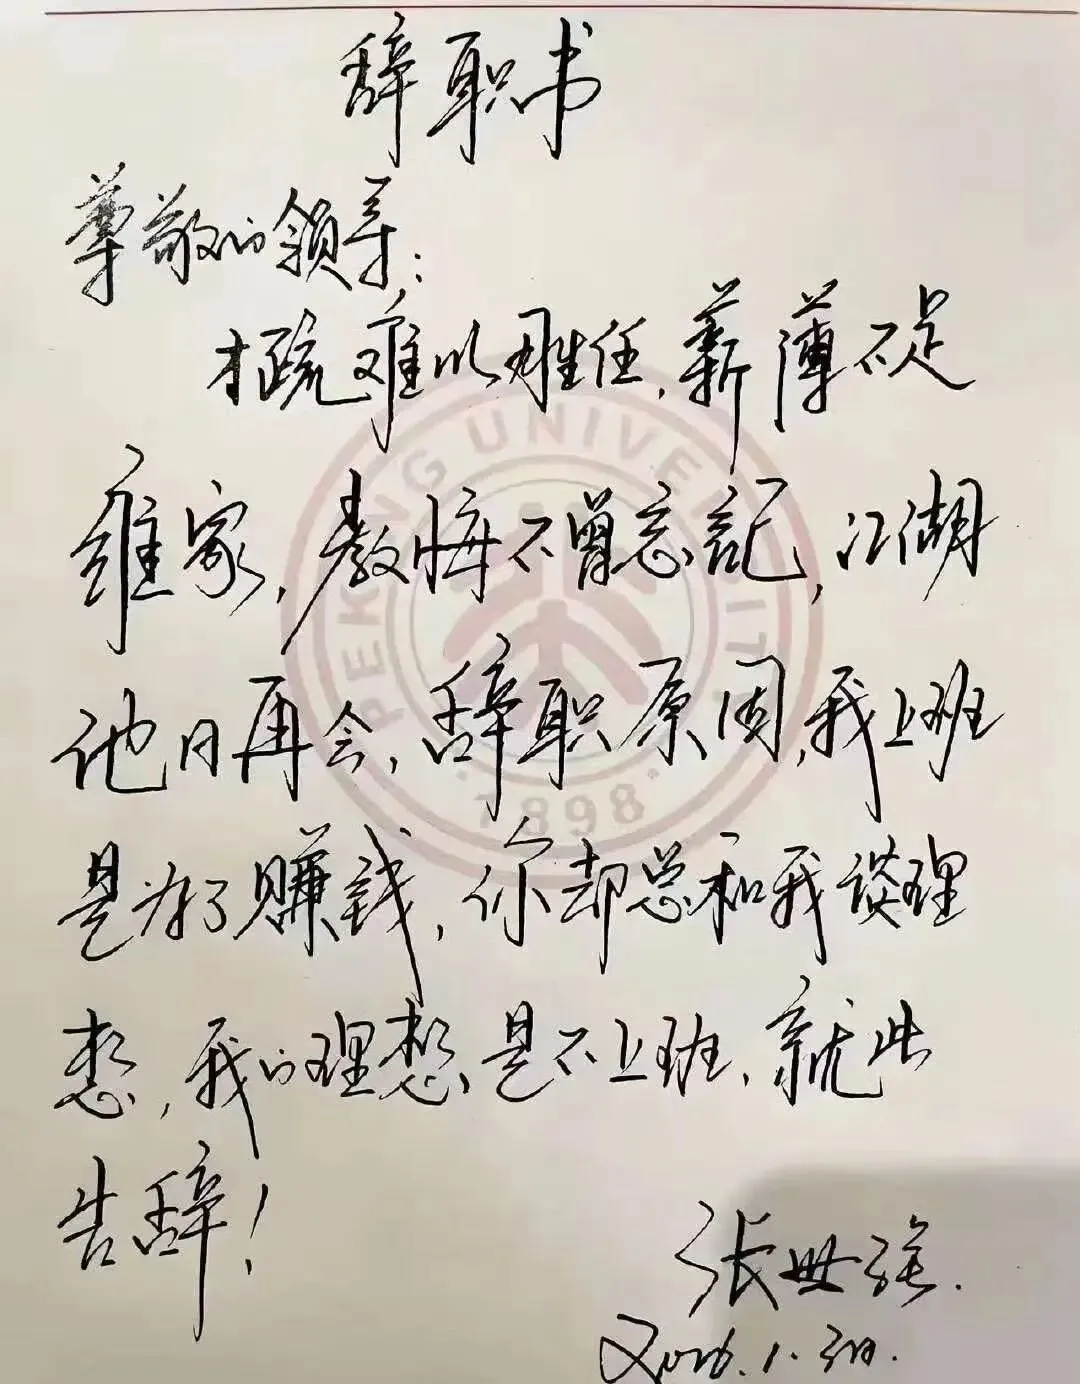 辞职书
尊敬的领导:
才疏难以胜任,薪薄不足
维家,教悔不曾忘記,江湖
他日再会,辞职原因,我上班
是为了赚钱,你却总和我谈理
想,我的理想是不上班,就此
告辞!
张世强.
PEKING UNIVERSITY
1898